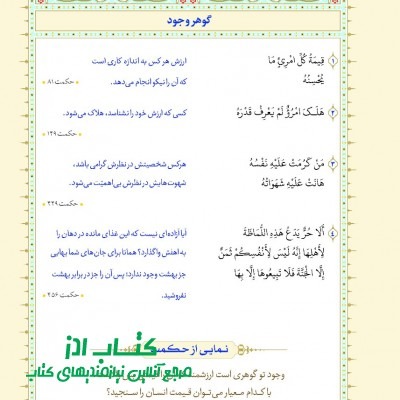 گوهر وجود
۱ قِيمَةُ كُلِّ امْرِئٍ مَا
يُحْسِنُهُ
ارزش هر کس به اندازهٔ کاری است
که آن را نیکو انجام می‌دهد.
حکمت ۸۱
۲ هَلَكَ امْرُؤٌ لَمْ يَعْرِفْ قَدْرَهُ
کسی که ارزش خود را نشناسد، هلاک می‌شود.
حکمت ۱۴۹
۳ مَنْ كَرُمَتْ عَلَيْهِ نَفْسُهُ
هَانَتْ عَلَيْهِ شَهَوَاتُهُ
هرکس شخصیتش در نظرش گرامی باشد،
شهوت‌هایش در نظرش بی‌اهمیّت می‌شود.
حکمت ۴۴۹
۴ أَلَا حُرٌّ يَدَعُ هَذِهِ اللُّمَاظَةَ
لِأَهْلِهَا إِنَّهُ لَيْسَ لِأَنْفُسِكُمْ ثَمَنٌ
إِلَّا الْجَنَّةَ فَلَا تَبِيعُوهَا إِلَّا بِهَا
آیا آزاده‌ای نیست که این غذای مانده در دهان را
به اهلش واگذارد؟ همانا برای جان‌های شما بهایی
جز بهشت وجود ندارد؛ پس آن را جز در برابر بهشت
نفروشید.
حکمت ۴۵۶
نمایی از حکمت
کتاب ادز
مرجع آنلاین نیازمندیهای کتاب
وجود تو گوهری است ارزشمند
با کدام معیار می‌توان قیمت انسان را سنجید؟